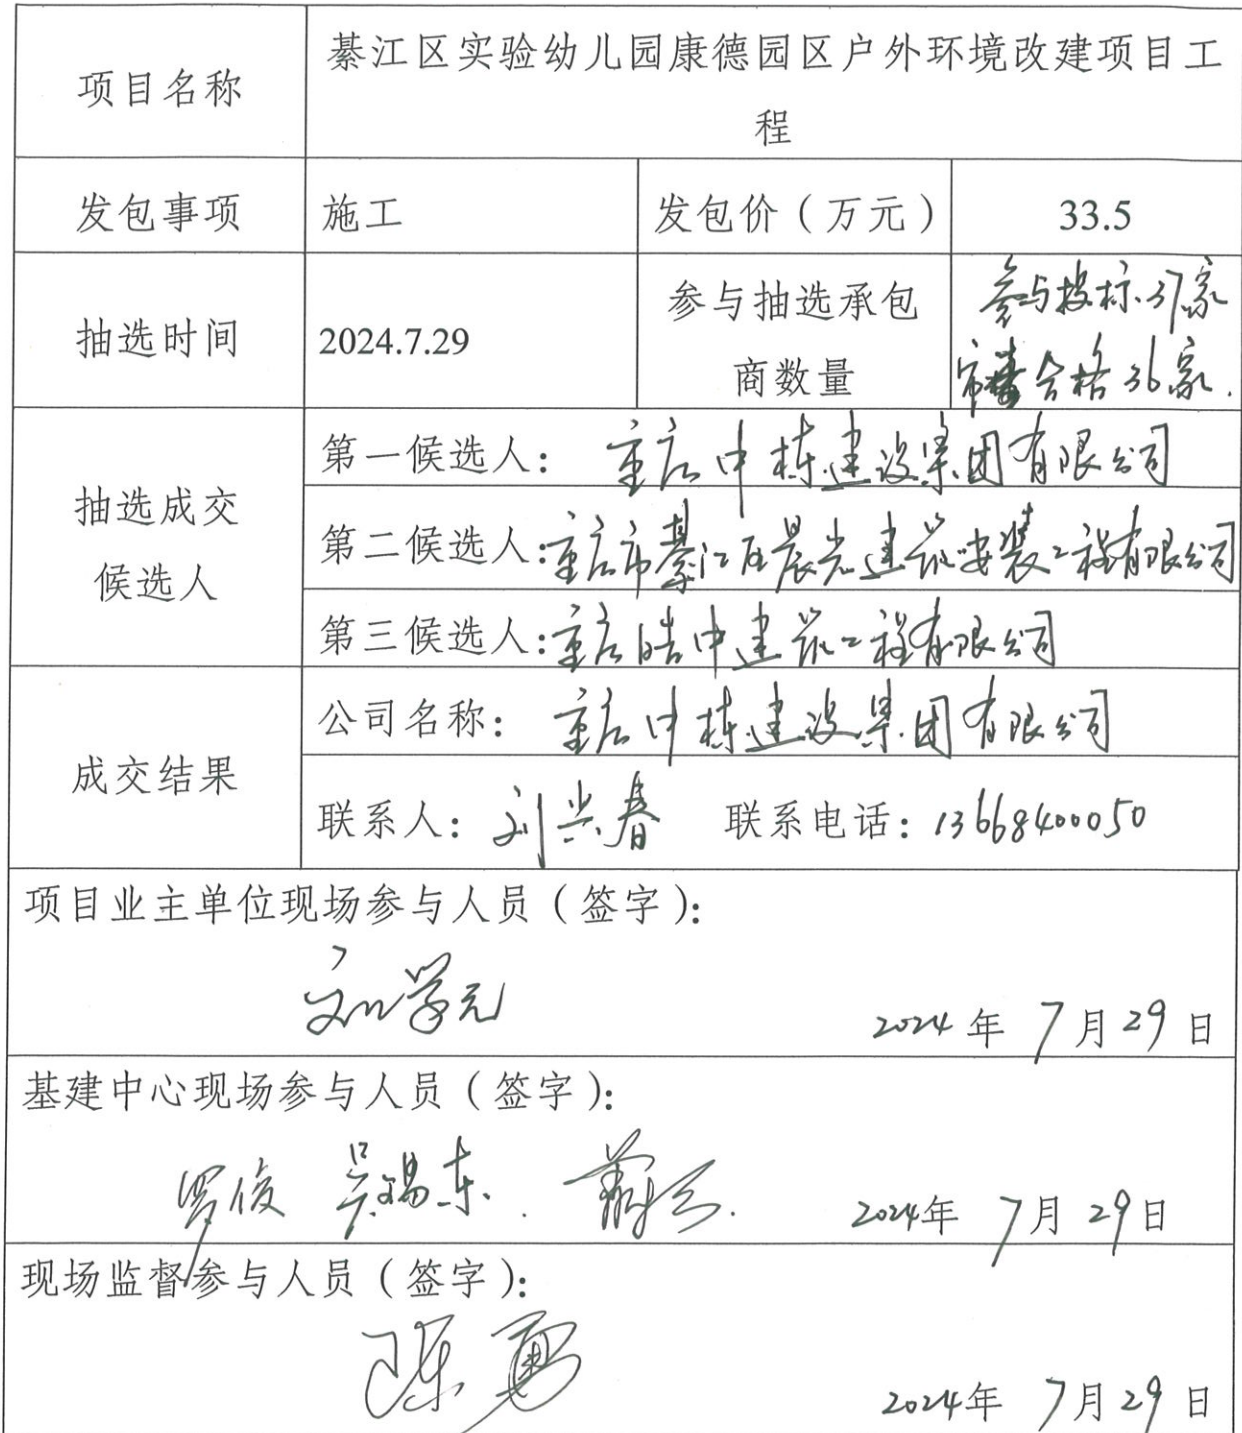 项目名称
綦江区实验幼儿园康德园区户外环境改建项目工
程
发包事项
施工
发包价（万元）
33.5
抽选时间
2024.7.29
参与抽选承包
商数量
参与投标37家
审查合格36家.
抽选成交
候选人
第一候选人：重庆中栋建设集团有限公司
第二候选人：重庆市綦江区晨光建筑安装工程有限公司
第三候选人：重庆皓中建筑工程有限公司
成交结果
公司名称：重庆中栋建设集团有限公司
联系人：刘兴春 联系电话：13668400050
项目业主单位现场参与人员（签字）：
2024年7月29日
基建中心现场参与人员（签字）：
罗俊 吴锡东.
2024年7月29日
现场监督参与人员（签字）：
陈勇
2024年7月29日